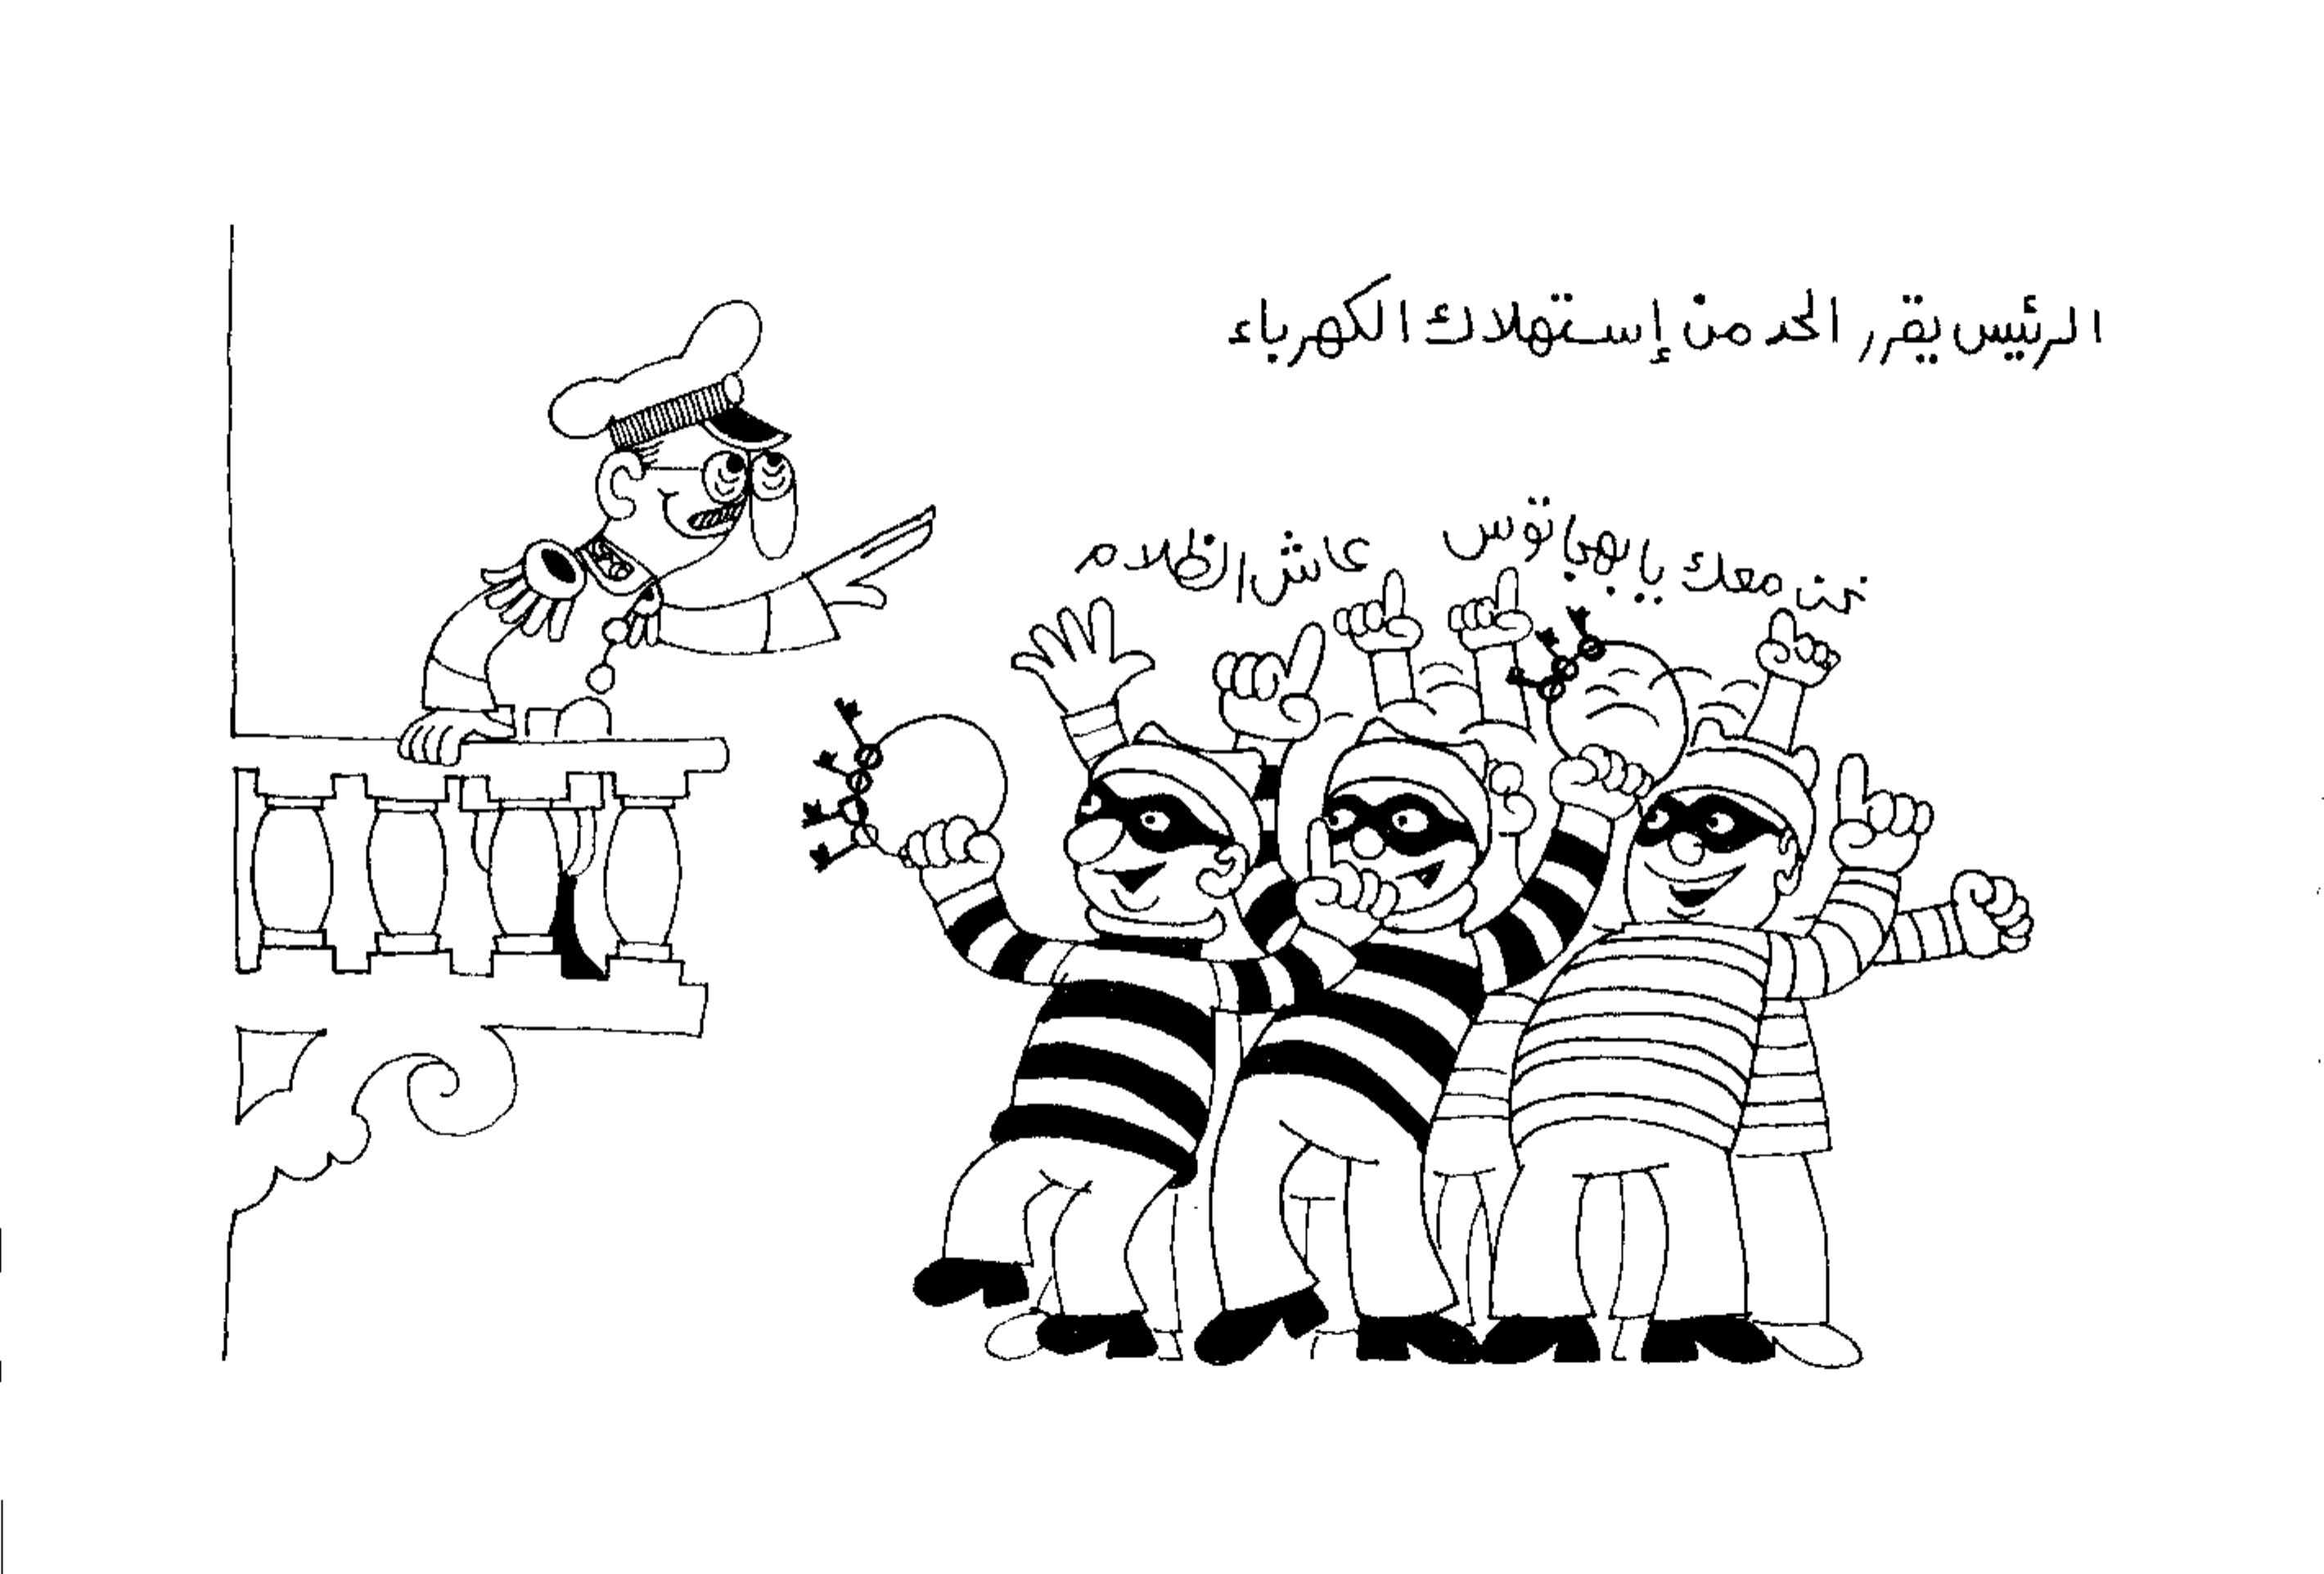 الرئيس يقرر الحد من إستهلاك الكهرباء
نحن معك يا بهجاتوس
عاش الظلام